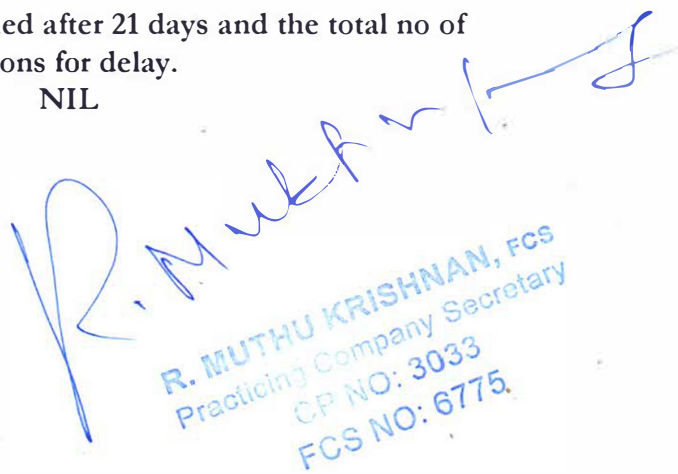 ed after 21 days and the total no of
ons for delay.
NIL
R. MUTHU KRISHNAN, FCS
Practicing Company Secretary
CP NO: 3033
FCS NO: 6775